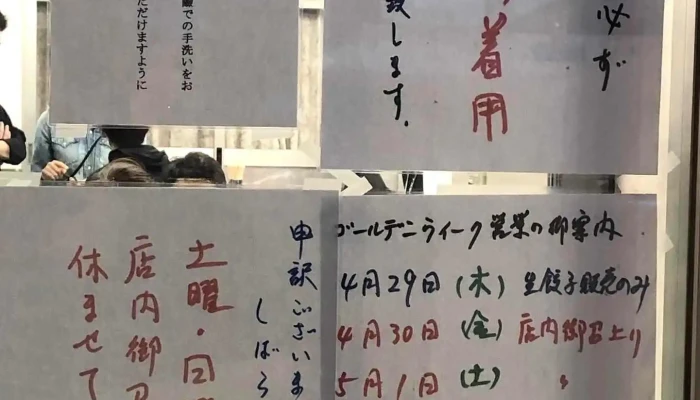 必ず
着用
致します。
での手洗いをお
ただけますように
ゴールデンウィーク営業の御案内
4月29日(木)生餃子販売のみ
4月30日(金)店内御召上り
5月1日(土) 〃
申訳ございま
しばら
土曜・日
店内御召
休ませて